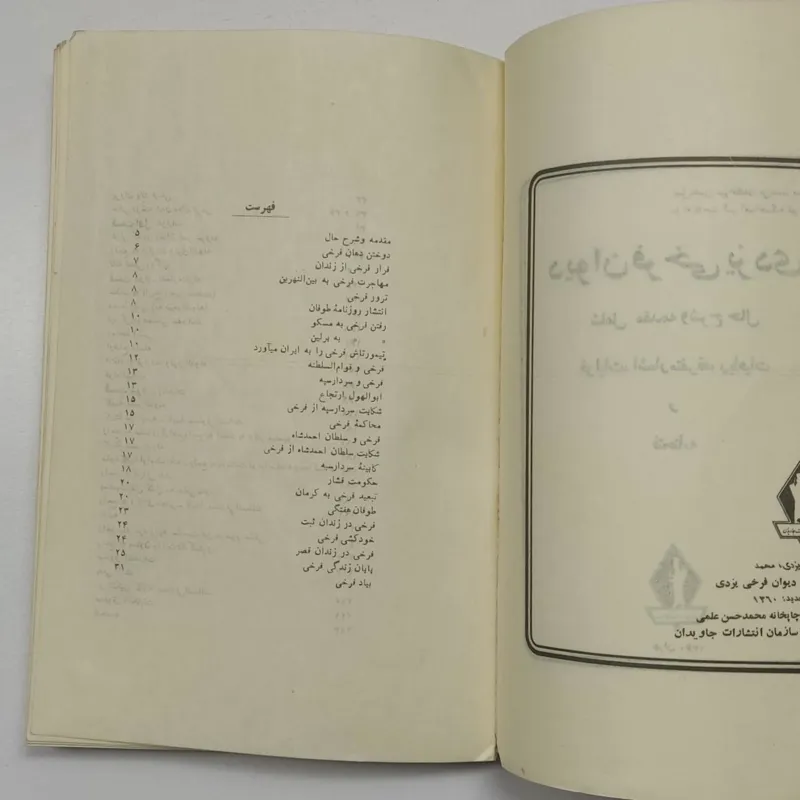 فهرست
مقدمه وشرح حال ۵
دوختن دهان فرخی ۶
فرار فرخی از زندان ۷
مهاجرت فرخی به بین‌النهرین ۸
ترور فرخی ۸
انتشار روزنامهٔ طوفان ۸
رفتن فرخی به مسکو ۱۰
» » به برلین ۱۰
تیمورتاش فرخی را به ایران میآورد ۱۰
فرخی و قوام‌السلطنه ۱۲
فرخی و سردارسپه ۱۳
ابوالهول ارتجاع ۱۳
شکایت سردارسپه از فرخی ۱۵
محاکمهٔ فرخی ۱۵
فرخی و سلطان احمدشاه ۱۷
شکایت سلطان احمدشاه از فرخی ۱۷
کابینهٔ سردارسپه ۱۷
حکومت فشار ۱۸
تبعید فرخی به کرمان ۲۰
طوفان هفتگی ۲۰
فرخی در زندان ثبت ۲۳
خودکشی فرخی ۲۴
فرخی در زندان قصر ۲۴
پایان زندگی فرخی ۲۵
بیاد فرخی ۳۱
یزدی، محمد
دیوان فرخی یزدی
۱۳۶۰
چاپخانه محمدحسن علمی
سازمان انتشارات جاویدان